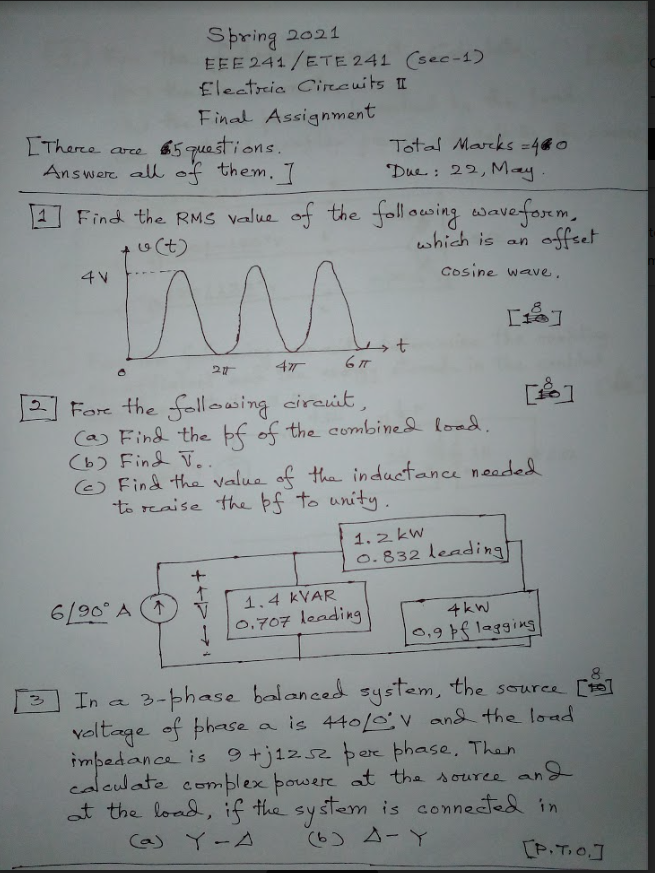 Spring 2021
EEE 241/ETE 241 (sec-1)
Electric Circuits II
Final Assignment
[There are 5 questions. Total Marks = 40
Answer all of them.] Due: 22, May.
1 Find the RMS value of the following waveform,
which is an offset
cosine wave.
v(t)
4V
[8]
t
0 2π 4π 6π
2 For the following circuit, [8]
(a) Find the pf of the combined load.
(b) Find V̅o.
(c) Find the value of the inductance needed
to raise the pf to unity.
1.2 kW
0.832 leading
6/90° A
+
V̅
-
1.4 kVAR
0.707 leading
4kW
0.9 pf lagging
3 In a 3-phase balanced system, the source [8]
voltage of phase a is 440/0° V and the load
impedance is 9+j12Ω per phase. Then
calculate complex power at the source and
at the load, if the system is connected in
(a) Y-Δ (b) Δ-Y
[P.T.O.]